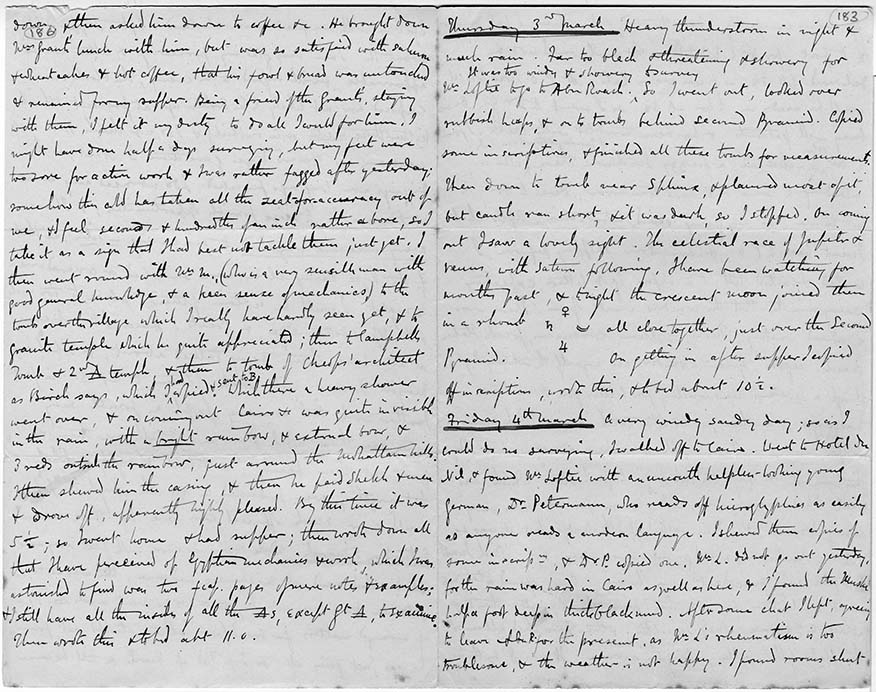 186
down & then asked him down to coffee &c. He brought down
Mrs Grant's lunch with him, but was so satisfied with salmon
& wheat cakes & hot coffee, that his fowl & bread was untouched
& remained for my supper. Being a friend of the Grants, staying
with them, I felt it my duty to do all I could for him. I
might have done half a days surveying, but my feet were
too sore for active work & I was rather fagged after yesterday;
somehow this cold has taken all the zeal for accuracy out of
me, & I feel seconds & hundredths of an inch rather a bore, so I
take it as a sign that I had best not tackle them just yet. I
then went round with Mr M., (who is a very sensible man with
good general knowledge, & a keen sense of mechanics) to the
tomb over the village which I really have hardly seen yet, & to
granite temple which he quite appreciated; then to Campbell's
Tomb & 2nd Δ temple, & then to tomb of Cheops' architect
as Birch says, which I had copied & sent to B. While there a heavy shower
went over, & on coming out Cairo &c was quite invisible
in the rain, with a bright rainbow, & external bow, &
3 reds outside the rainbow, just around the Mokattam hills.
I then shewed him the casing, & then he paid Sheikh & men
& drove off, apparently highly pleased. By this time it was
5 ½; so I went home & had supper; then wrote down all
that I have perceived of Egyptian mechanics & work, which I was
astonished to find was two fcap. pages of mere notes & examples;
& I still have all the insides of all the Δs, except Gt Δ, to examine.
Then wrote this & to bed abt 11.0.
183
Thursday 3rd March Heavy thunderstorm in night &
much rain. Far too black & threatening & showery for
It was too windy & showery to survey
Mr Loftie to go to Abu Roash, so I went out, looked over
rubbish heaps, & on to tombs behind Second Pyramid. Copied
some inscriptions, & finished all these tombs for measurements.
Then down to tomb near Sphinx, & planned most of it,
but candle ran short, & it was dark, so I stopped. On coming
out I saw a lovely sight. The celestial race of Jupiter &
Venus, with Saturn following, I have been watching for
months past, & tonight the crescent moon joined them
in a rhomb ♄ ♀ ⌣ ♃ all close together, just over the Second
Pyramid. On getting in after supper I copied
off inscriptions, wrote this, & to bed about 10
Friday 4th March A very windy sandy day; so as I
could do no surveying, I walked off to Cairo. Went to Hotel du
Nil, & found Mr Loftie with an uncouth helpless-looking young
german, Dr Petermann, who reads off hieroglyphics as easily
as anyone reads a modern language. I shewed them copies of
some inscripns, & Dr P. copied one. Mr L. did not go out yesterday,
for the rain was hard in Cairo as well as here, & I found the Muski
half a foot deep in thick black mud. After some chat I left, agreeing
to leave for the present, as Mr L's rheumatism is too
troublesome, & the weather is not happy. I found rooms shut